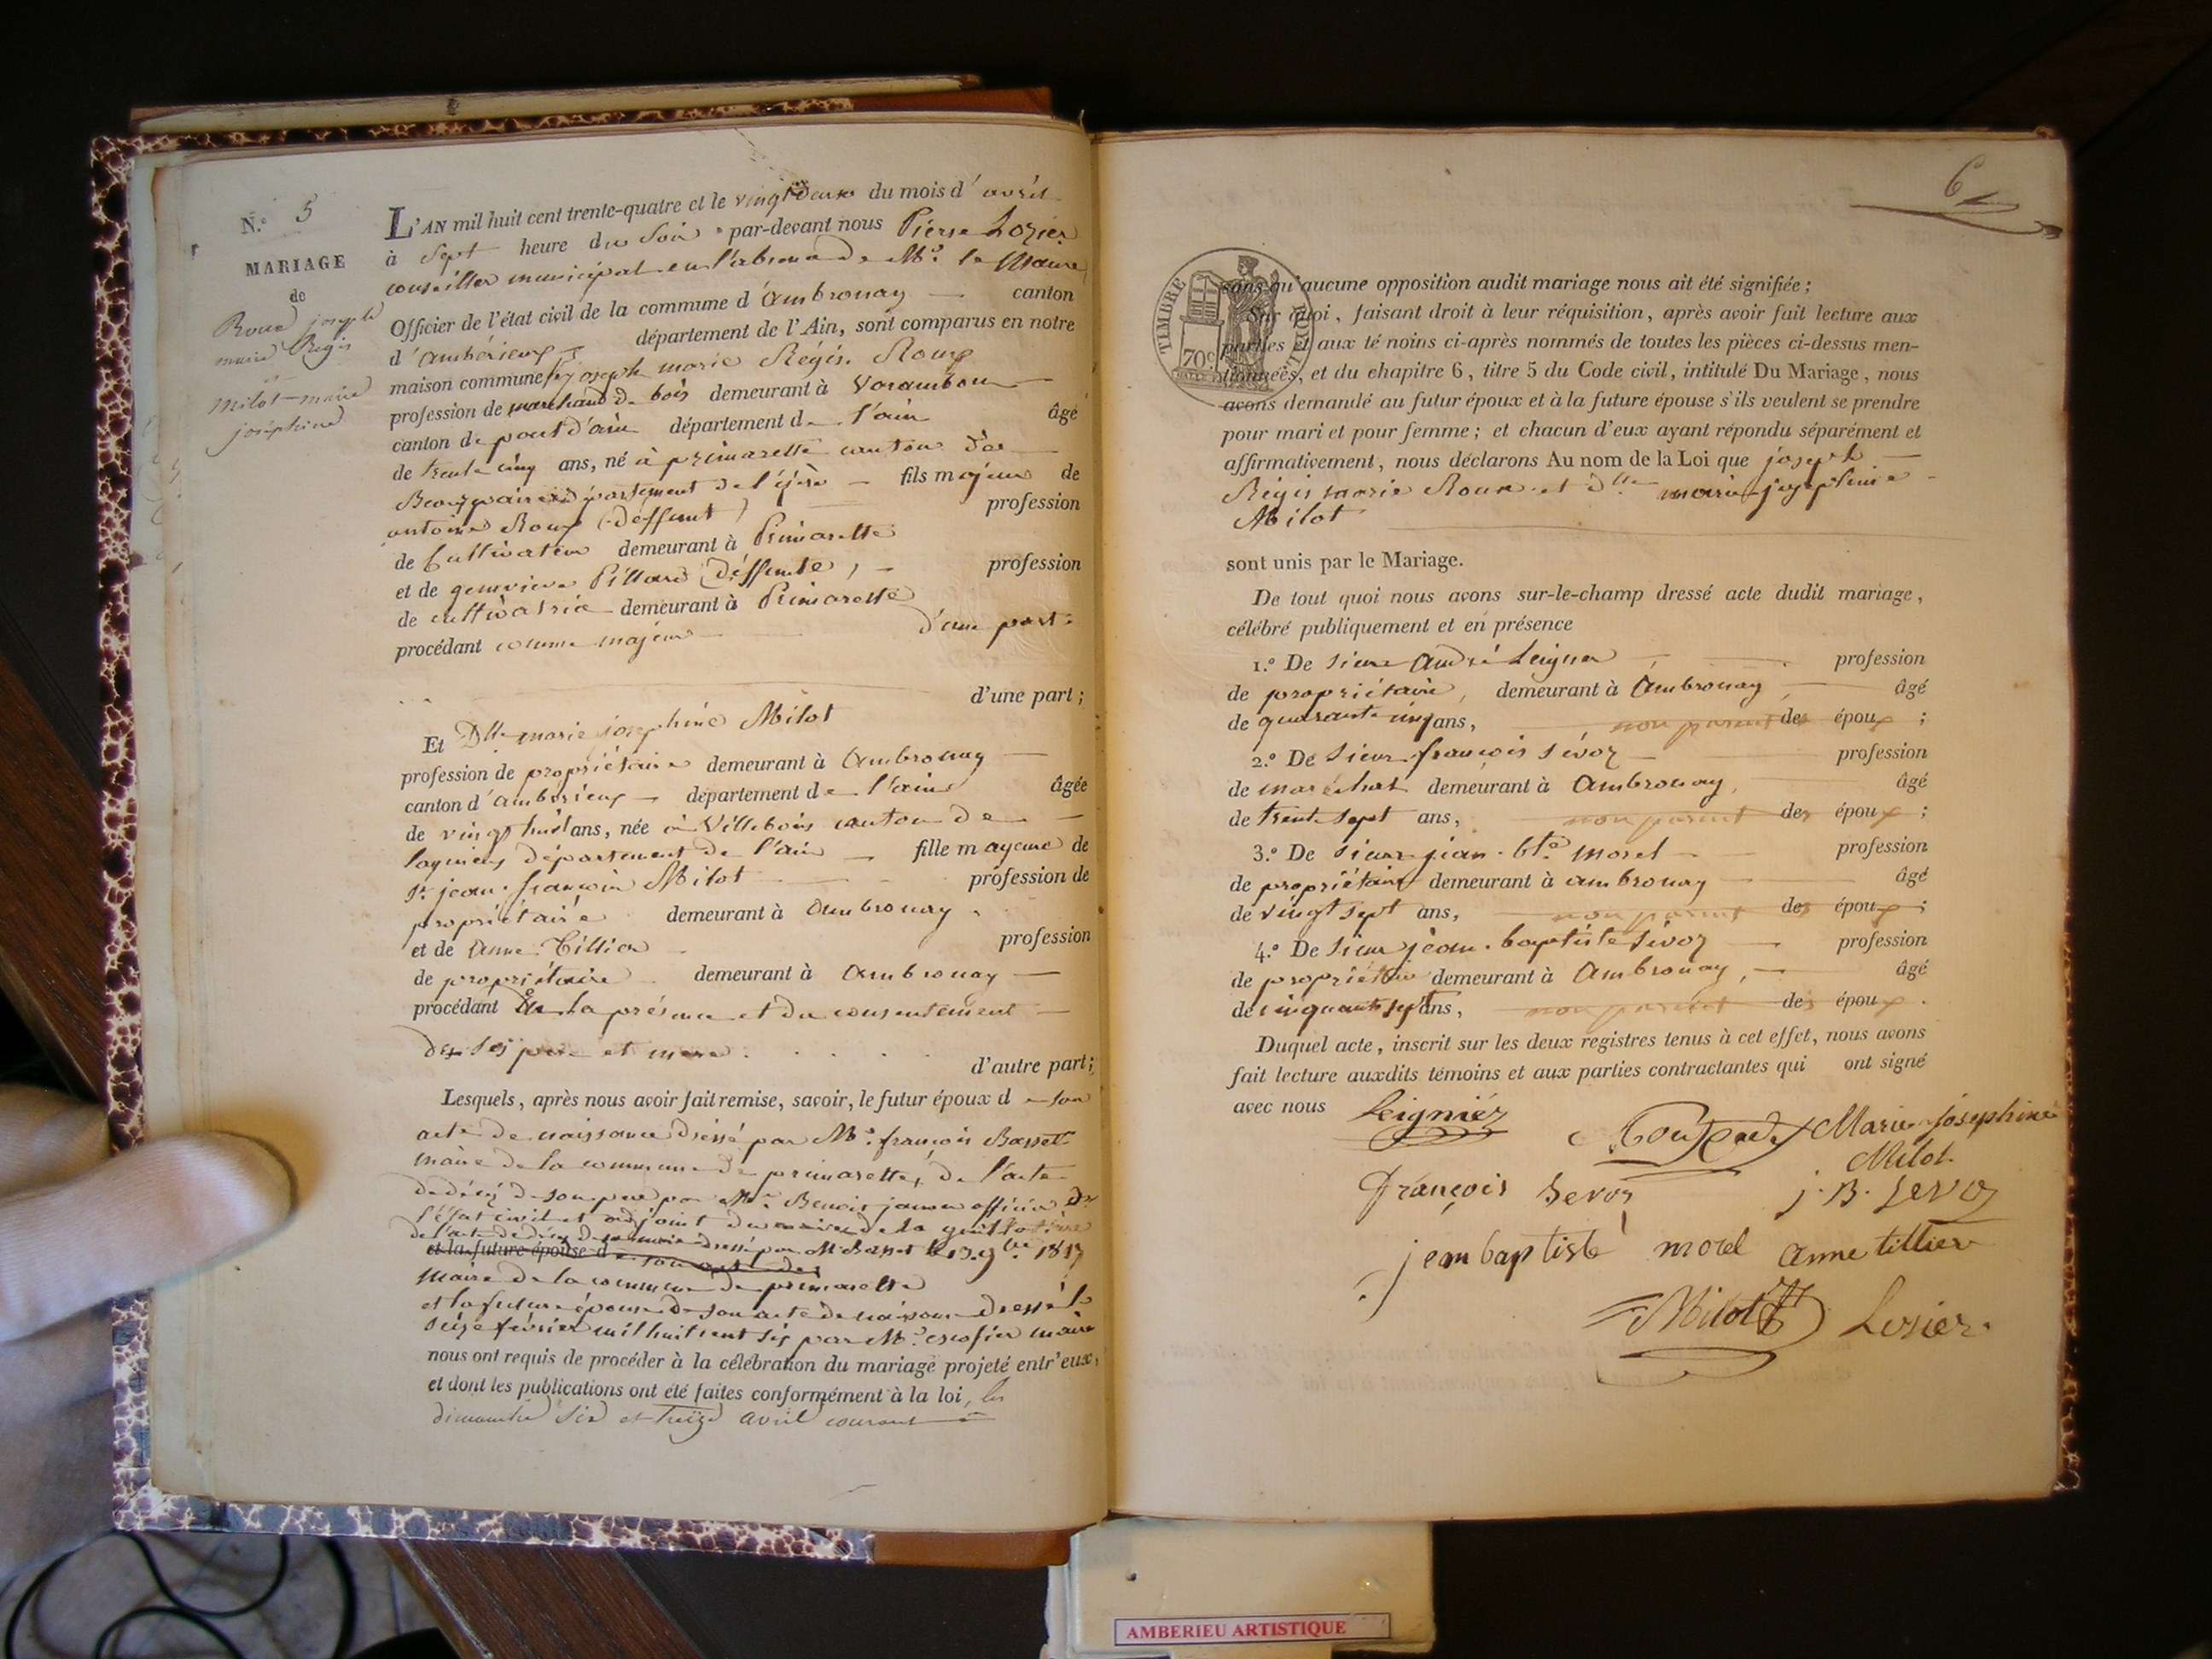 N.° 5
MARIAGE
de
Roux joseph
marie Régis
et
Milot marie
joséphine
L'AN mil huit cent trente-quatre et le vingt deux du mois d'avril
à sept heure du soir par-devant nous Pierre Lozier
conseiller municipal en l'absence de Mr. le Maire
Officier de l'état civil de la commune d'ambronay canton
d'ambérieux département de l'Ain, sont comparus en notre
maison commune joseph marie Régis Roux
profession de marchand de bois demeurant à Varambon
canton de pont d'ain département de l'ain âgé
de trente cinq ans, né à primarette canton de
Beaurepaire département de l'isère fils majeur de
antoine Roux (deffunt) profession
de Cultivateur demeurant à Primarette
et de genevieve Pillard (deffunte), profession
de cultivatrice demeurant à Primarette
procédant comme majeur d'une part
d'une part ;
Et Dlle marie joséphine Milot
profession de propriétaire demeurant à Ambronay
canton d'amberieux département de l'ain âgée
de vingt huit ans, née à Villebois canton de
lagnieux département de l'ain fille mayeure de
Sr. jean françois Milot profession de
propriétaire demeurant à Ambronay
et de Anne Tillier profession
de propriétaire demeurant à Ambronay
procédant de la présence et du consentement
de ses pere et mere. d'autre part ;
Lesquels, après nous avoir fait remise, savoir, le futur époux de son
acte de naissance dréssé par Mr. françois Basset
maire de la commune de primarette, de l'acte
de décés de son pere par Mr. Benoit officier de
l'état civil et adjoint du maire de la guillotiere
de l'acte de décés de sa mere dressé par Mr Basset le 13 9bre 1817
et la future épouse de son acte de
maire de la commune de primarette
et la future épouse de son acte de naissance dressé le
seize février mil huit cent six par Mr. maire
nous ont requis de procéder à la célébration du mariage projeté entr'eux,
et dont les publications ont été faites conformément à la loi, les
dimanche six et treize avril courant
6
TIMBRE ROYAL
70c
sans qu'aucune opposition audit mariage nous ait été signifiée ;
Sur quoi, faisant droit à leur réquisition, après avoir fait lecture aux
parties et aux témoins ci-après nommés de toutes les pièces ci-dessus men-
tionnées, et du chapitre 6, titre 5 du Code civil, intitulé Du Mariage, nous
avons demandé au futur époux et à la future épouse s'ils veulent se prendre
pour mari et pour femme ; et chacun d'eux ayant répondu séparément et
affirmativement, nous déclarons Au nom de la Loi que joseph
Régis marie Roux et dlle marie joséphine
Milot
sont unis par le Mariage.
De tout quoi nous avons sur-le-champ dressé acte dudit mariage,
célébré publiquement et en présence
1.° De sieur André Leignier profession
de propriétaire, demeurant à Ambronay, âgé
de quarante cinq ans, non parent des époux ;
2.° De sieur françois Sévoz profession
de maréchal demeurant à Ambronay, âgé
de trente sept ans, non parent des époux ;
3.° De sieur jean bte. morel profession
de propriétaire demeurant à ambronay âgé
de vingt sept ans, non parent des époux ;
4.° De sieur jean baptiste Sévoz profession
de propriétaire demeurant à Ambronay, âgé
de cinquante sept ans, non parent des époux.
Duquel acte, inscrit sur les deux registres tenus à cet effet, nous avons
fait lecture auxdits témoins et aux parties contractantes qui ont signé
avec nous Leigniéz Marie Joséphine
Milot.
françois Sevoz j. B. Sevoz
jean baptiste morel anne tillier
Milot Losier
AMBERIEU ARTISTIQUE